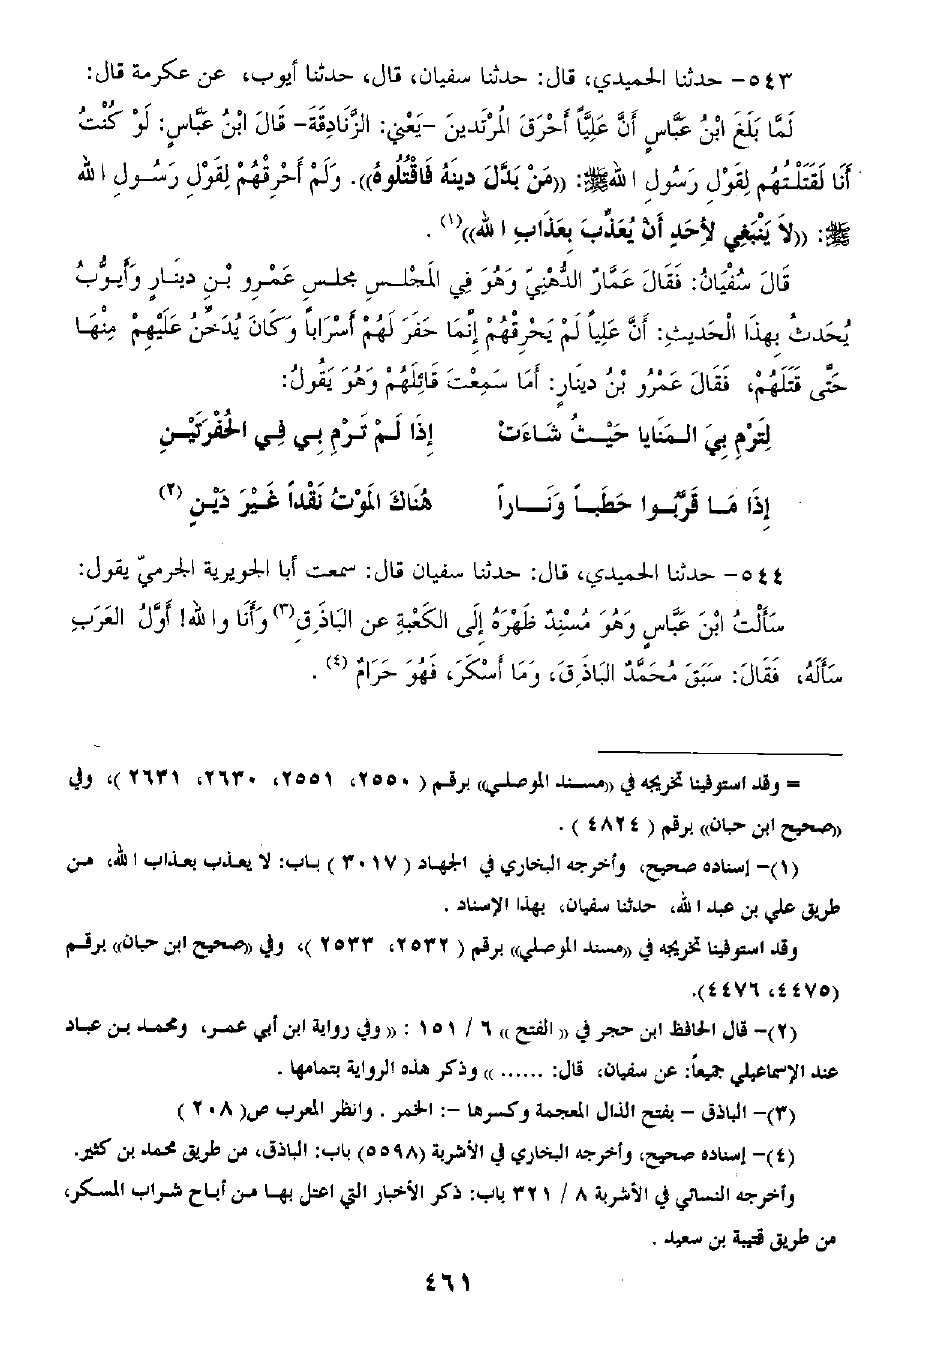 ٥٤٣- حدثنا الحميدي، قال: حدثنا سفيان، قال، حدثنا أيوب، عن عكرمة قال:
لَمَّا بَلَغَ ابْنُ عَبَّاسٍ أَنَّ عَلِيَّاً أَحْرَقَ الْمُرْتَدينَ –يَعْنِي: الزَّنَادِقَةَ– قَالَ ابْنُ عَبَّاسٍ: لَوْ كُنْتُ
أَنَا لَقَتَلْتُهُم لِقَوْلِ رَسُولِ اللهِ ﷺ: ((مَنْ بَدَّلَ دينَهُ فَاقْتُلُوهُ)). وَلَمْ أُحَرِقْهُمْ لِقَوْلِ رَسُولِ الله
ﷺ: ((لاَ يَنْبَغِي لأحَدٍ أَنْ يُعَذِّبَ بِعَذَابِ اللهِ))(١).
قَالَ سُفْيَانُ: فَقَالَ عَمَّارٌ الدُّهْنِيّ وَهُوَ فِي الْمَجْلِسِ مجلسِ عَمْرِو بْنِ دينَارٍ وَأَيوبُ
يُحَدثُ بِهذَا الْحَديثِ: أَنَّ عَلِياً لَمْ يَحْرِقْهُمْ إنَّمَا حَفَرَ لَهُمْ أَسْرَاباً وَكَانَ يُدَخِّنُ عَلَيْهِمْ مِنْهَا
حَتَّى قَتَلَهُمْ، فَقَالَ عَمْرُو بْنُ دينَارٍ: أَمَا سَمِعْتَ قَائِلَهُمْ وَهُوَ يَقُولُ:
لِتَرْمِ بِيَ الـمَنَايا حَيْـثُ شَاءَتْ إذَا لَـمْ تَـرْمِ بي فِـي الحُفْرَتَيْـنِ
إذَا مَـا قَرَّبُـوا حَطَبـاً وَنَـاراً هُنَاكَ الْمَوْتُ نَقْداً غَيْـرَ دَيْـنِ (٢)
٥٤٤- حدثنا الحميدي، قال: حدثنا سفيان قال: سمعت أبا الجويرية الجرميّ يقول:
سَأَلْتُ ابْنَ عَبَّاسٍ وَهُوَ مُسْنِدٌ ظَهْرَهُ إلَى الكَعْبَةِ عن البَاذَقِ(٣) وَأَنَا والله! أَوَّلُ العَرَبِ
سَأَلَهُ، فَقَالَ: سَبَقَ مُحَمَّدٌ البَاذَقَ، وَمَا أَسْكَرَ، فَهُوَ حَرَامٌ (٤).
= وقد استوفينا تخريجه في ((مسند الموصلي)) برقم ( ٢٥٥٠، ٢٥٥١، ٢٦٣٠، ٢٦٣١ )، وفي
((صحيح ابن حبان)) برقم ( ٤٨٢٤ ) .
(١)- إسناده صحيح، وأخرجه البخاري في الجهاد ( ٣٠١٧ ) باب: لا يعذب بعذاب الله، من
طريق علي بن عبد الله، حدثنا سفيان، بهذا الإسناد .
وقد استوفينا تخريجه في ((مسند الموصلي)) برقم ( ٢٥٣٢، ٢٥٣٣ )، وفي ((صحيح ابن حبان)) برقم
(٤٤٧٥، ٤٤٧٦).
(٢)- قال الحافظ ابن حجر في (( الفتح )) ٦ / ١٥١ : (( وفي رواية ابن أبي عمر، ومحمد بن عباد
عند الإسماعيلي جميعاً: عن سفيان، قال: ...... )) وذكر هذه الرواية بتمامها .
(٣)- الباذق - بفتح الذال المعجمة وكسرها -: الخمر . وانظر المعرب ص( ٢٠٨ )
(٤)- إسناده صحيح، وأخرجه البخاري في الأشربة (٥٥٩٨) باب: الباذق، من طريق محمد بن كثير.
وأخرجه النسائي في الأشربة ٨ / ٣٢١ باب: ذكر الأخبار التي اعتل بها من أباح شراب المسكر،
من طريق قتيبة بن سعيد .
٤٦١